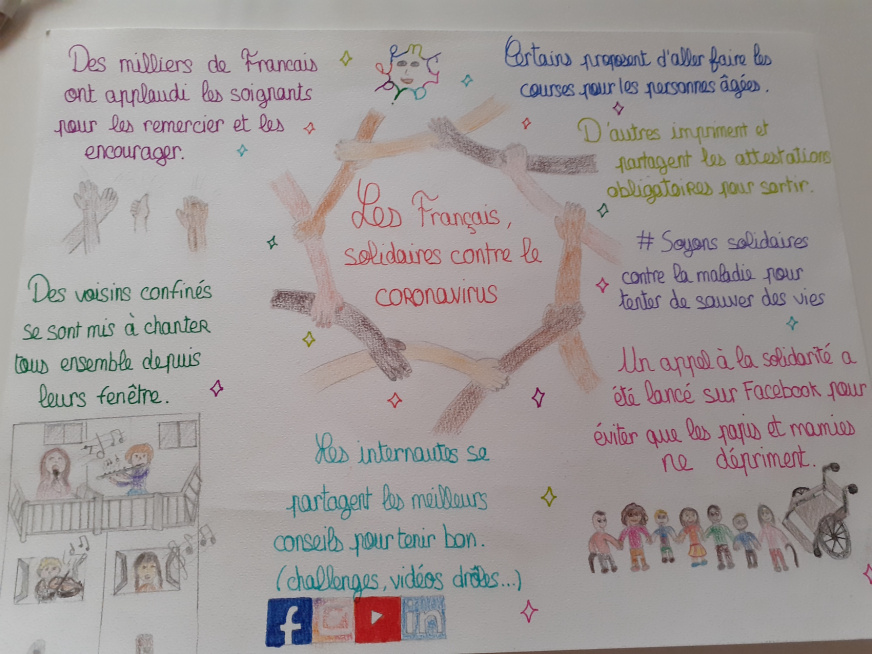 Des milliers de Francais
ont applaudi les soignants
pour les remercier et les
encourager.
Certains proposent d'aller faire les
courses pour les personnes âgées.
D'autres impriment et
partagent les attestations
obligatoires pour sortir.
Les Français,
solidaires contre le
coronavirus
# Soyons solidaires
contre la maladie pour
tenter de sauver des vies
Des voisins confinés
se sont mis à chanter
tous ensemble depuis
leurs fenêtre.
Un appel à la solidarité a
été lancé sur Facebook pour
éviter que les papis et mamies
ne dépriment.
Les internautes se
partagent les meilleurs
conseils pour tenir bon.
(challenges, vidéos drôles...)
f
in